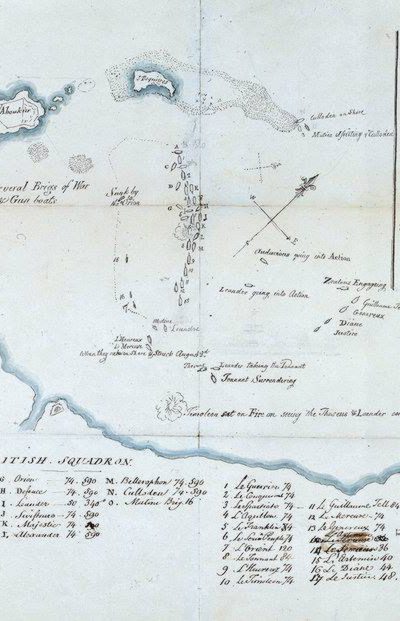 Aboukir
I. Bequieres
Culloden on Shore
Mutine assisting Culloden
everal Brigs of War
& Gun boats
Sunk by
Audacious going into Action
Leander going into Action
Zealous Engageing
Guillaume
Genereux
Diane
Justice
Mutine
Leander
L'Heureux
Le Mercure
When they ran on Shore & Struck August 3d
Theseus
Leander taking the Tonnant
Tonnant Surrendering
Timoleon set on Fire on seeing the Theseus & Leander
ITISH SQUADRON.
G Orion 74. 590
H. Defence 74. 590
I. Leander 50 340
J. Swiftsure 74. 590
K. Majestic 74
L. Alexander 74 590
M. Bellerophon 74. 590
N. Culloden 74. 590
O. Mutine Brig. 16
1 Le Guerrier 74
2 Le Conquerant 74
3 Le Spartiate 74
4 L'Aquilon 74
5 Le Franklin 84
6 Le Souvn Peuple 74
7 L'Orient 120
8 Le Tonnant 84
9 L'Heureux 74
10 Le Timoleon 74
11 Le Guillaume Tell 84
12 Le Mercure 74
13 Le Genereux 74
15 L'Artemise 40
16 La Diane 44
17 La Justice 48.